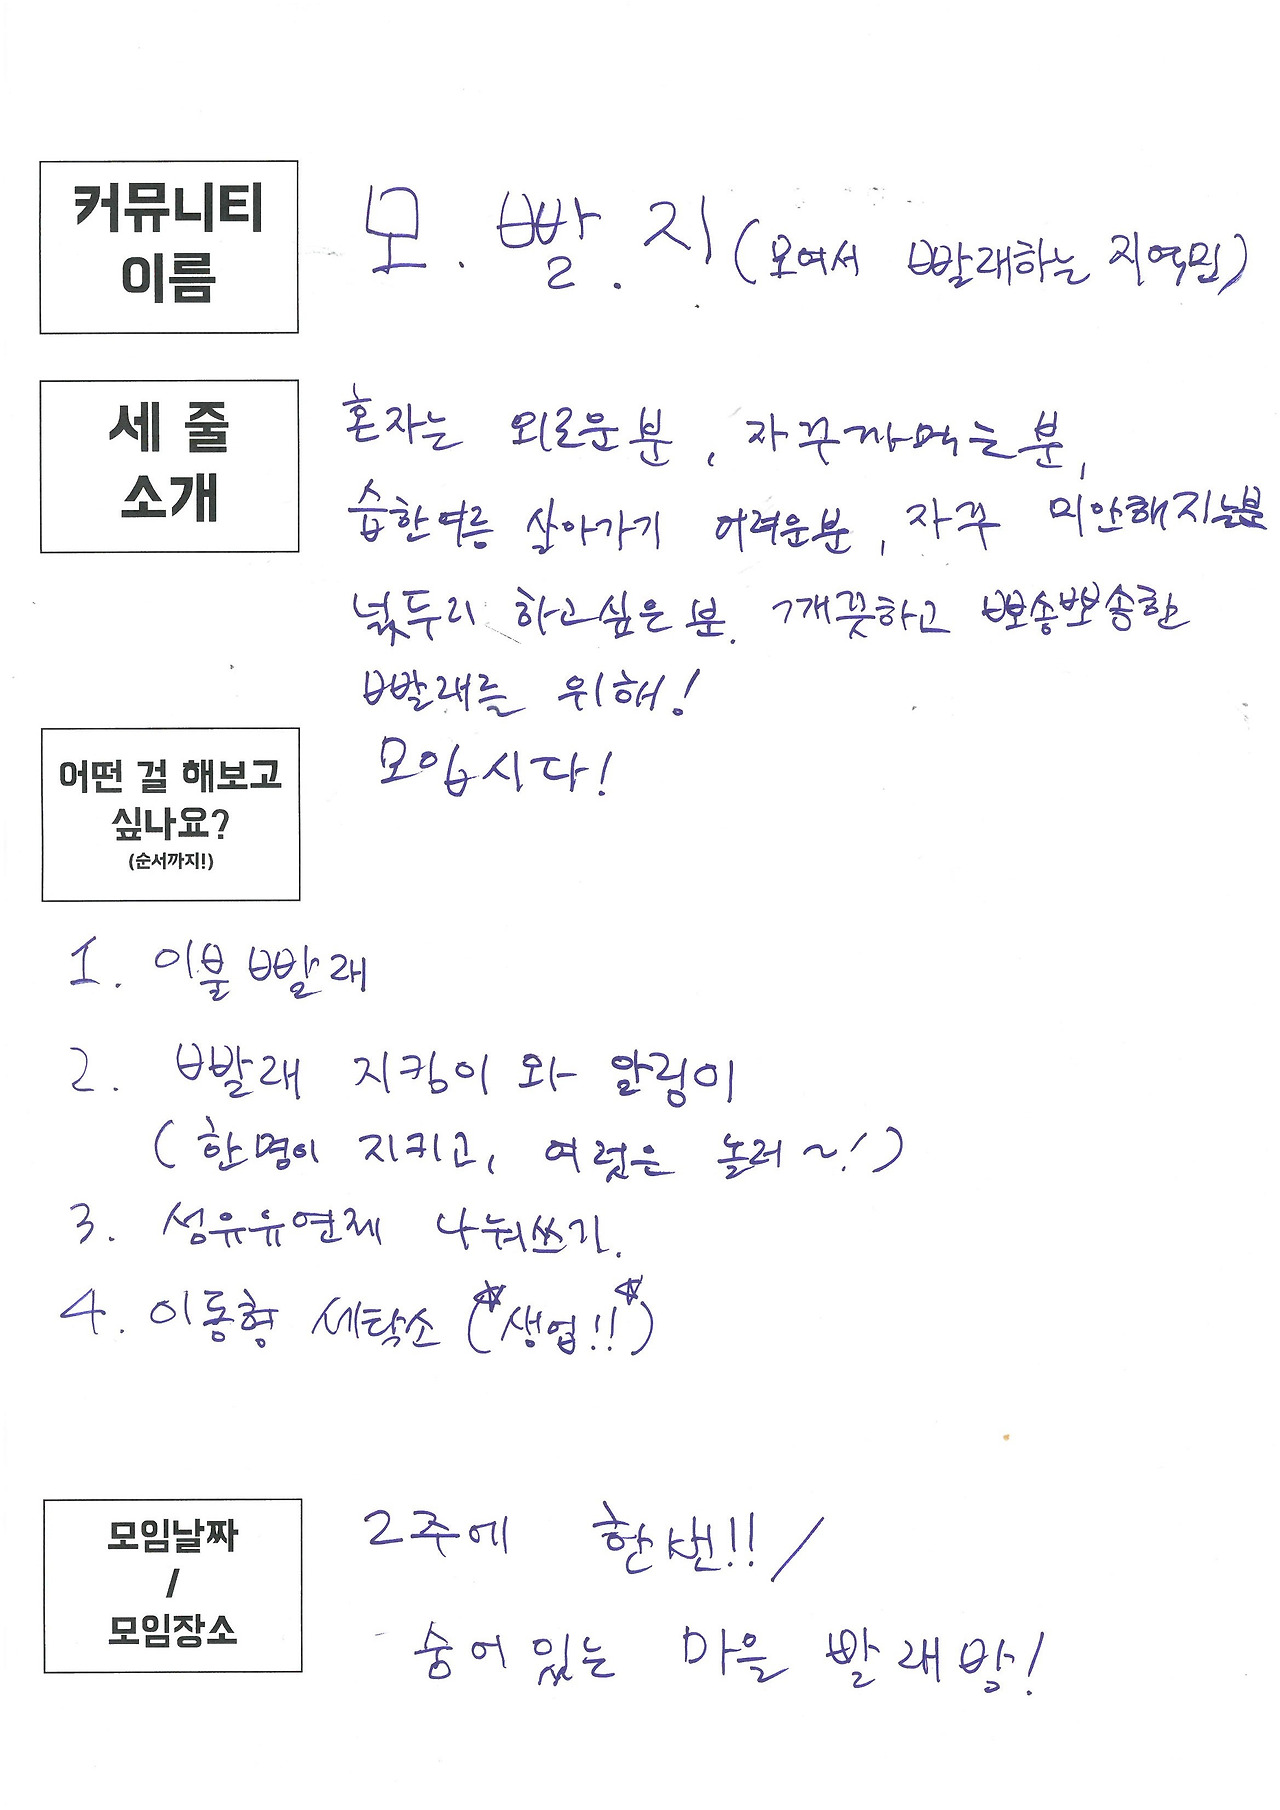 커뮤니티
이름
모. 빨. 지 (모여서 빨래하는 지역민)
세 줄
소개
혼자는 외로운분, 자꾸까먹는분,
습한여름 살아가기 어려운분, 자꾸 미안해지는분
넋두리 하고싶은 분. 깨끗하고 뽀송뽀송한
빨래를 위해!
모입시다!
어떤 걸 해보고
싶나요?
(순서까지!)
1. 이불빨래
2. 빨래 지킴이 와 알림이
(한명이 지키고, 여럿은 놀러~!)
3. 섬유유연제 나눠쓰기.
4. 이동형 세탁소 (☆생업!!☆)
모임날짜
/
모임장소
2주에 한번!! /
숨어있는 마을 빨래방!